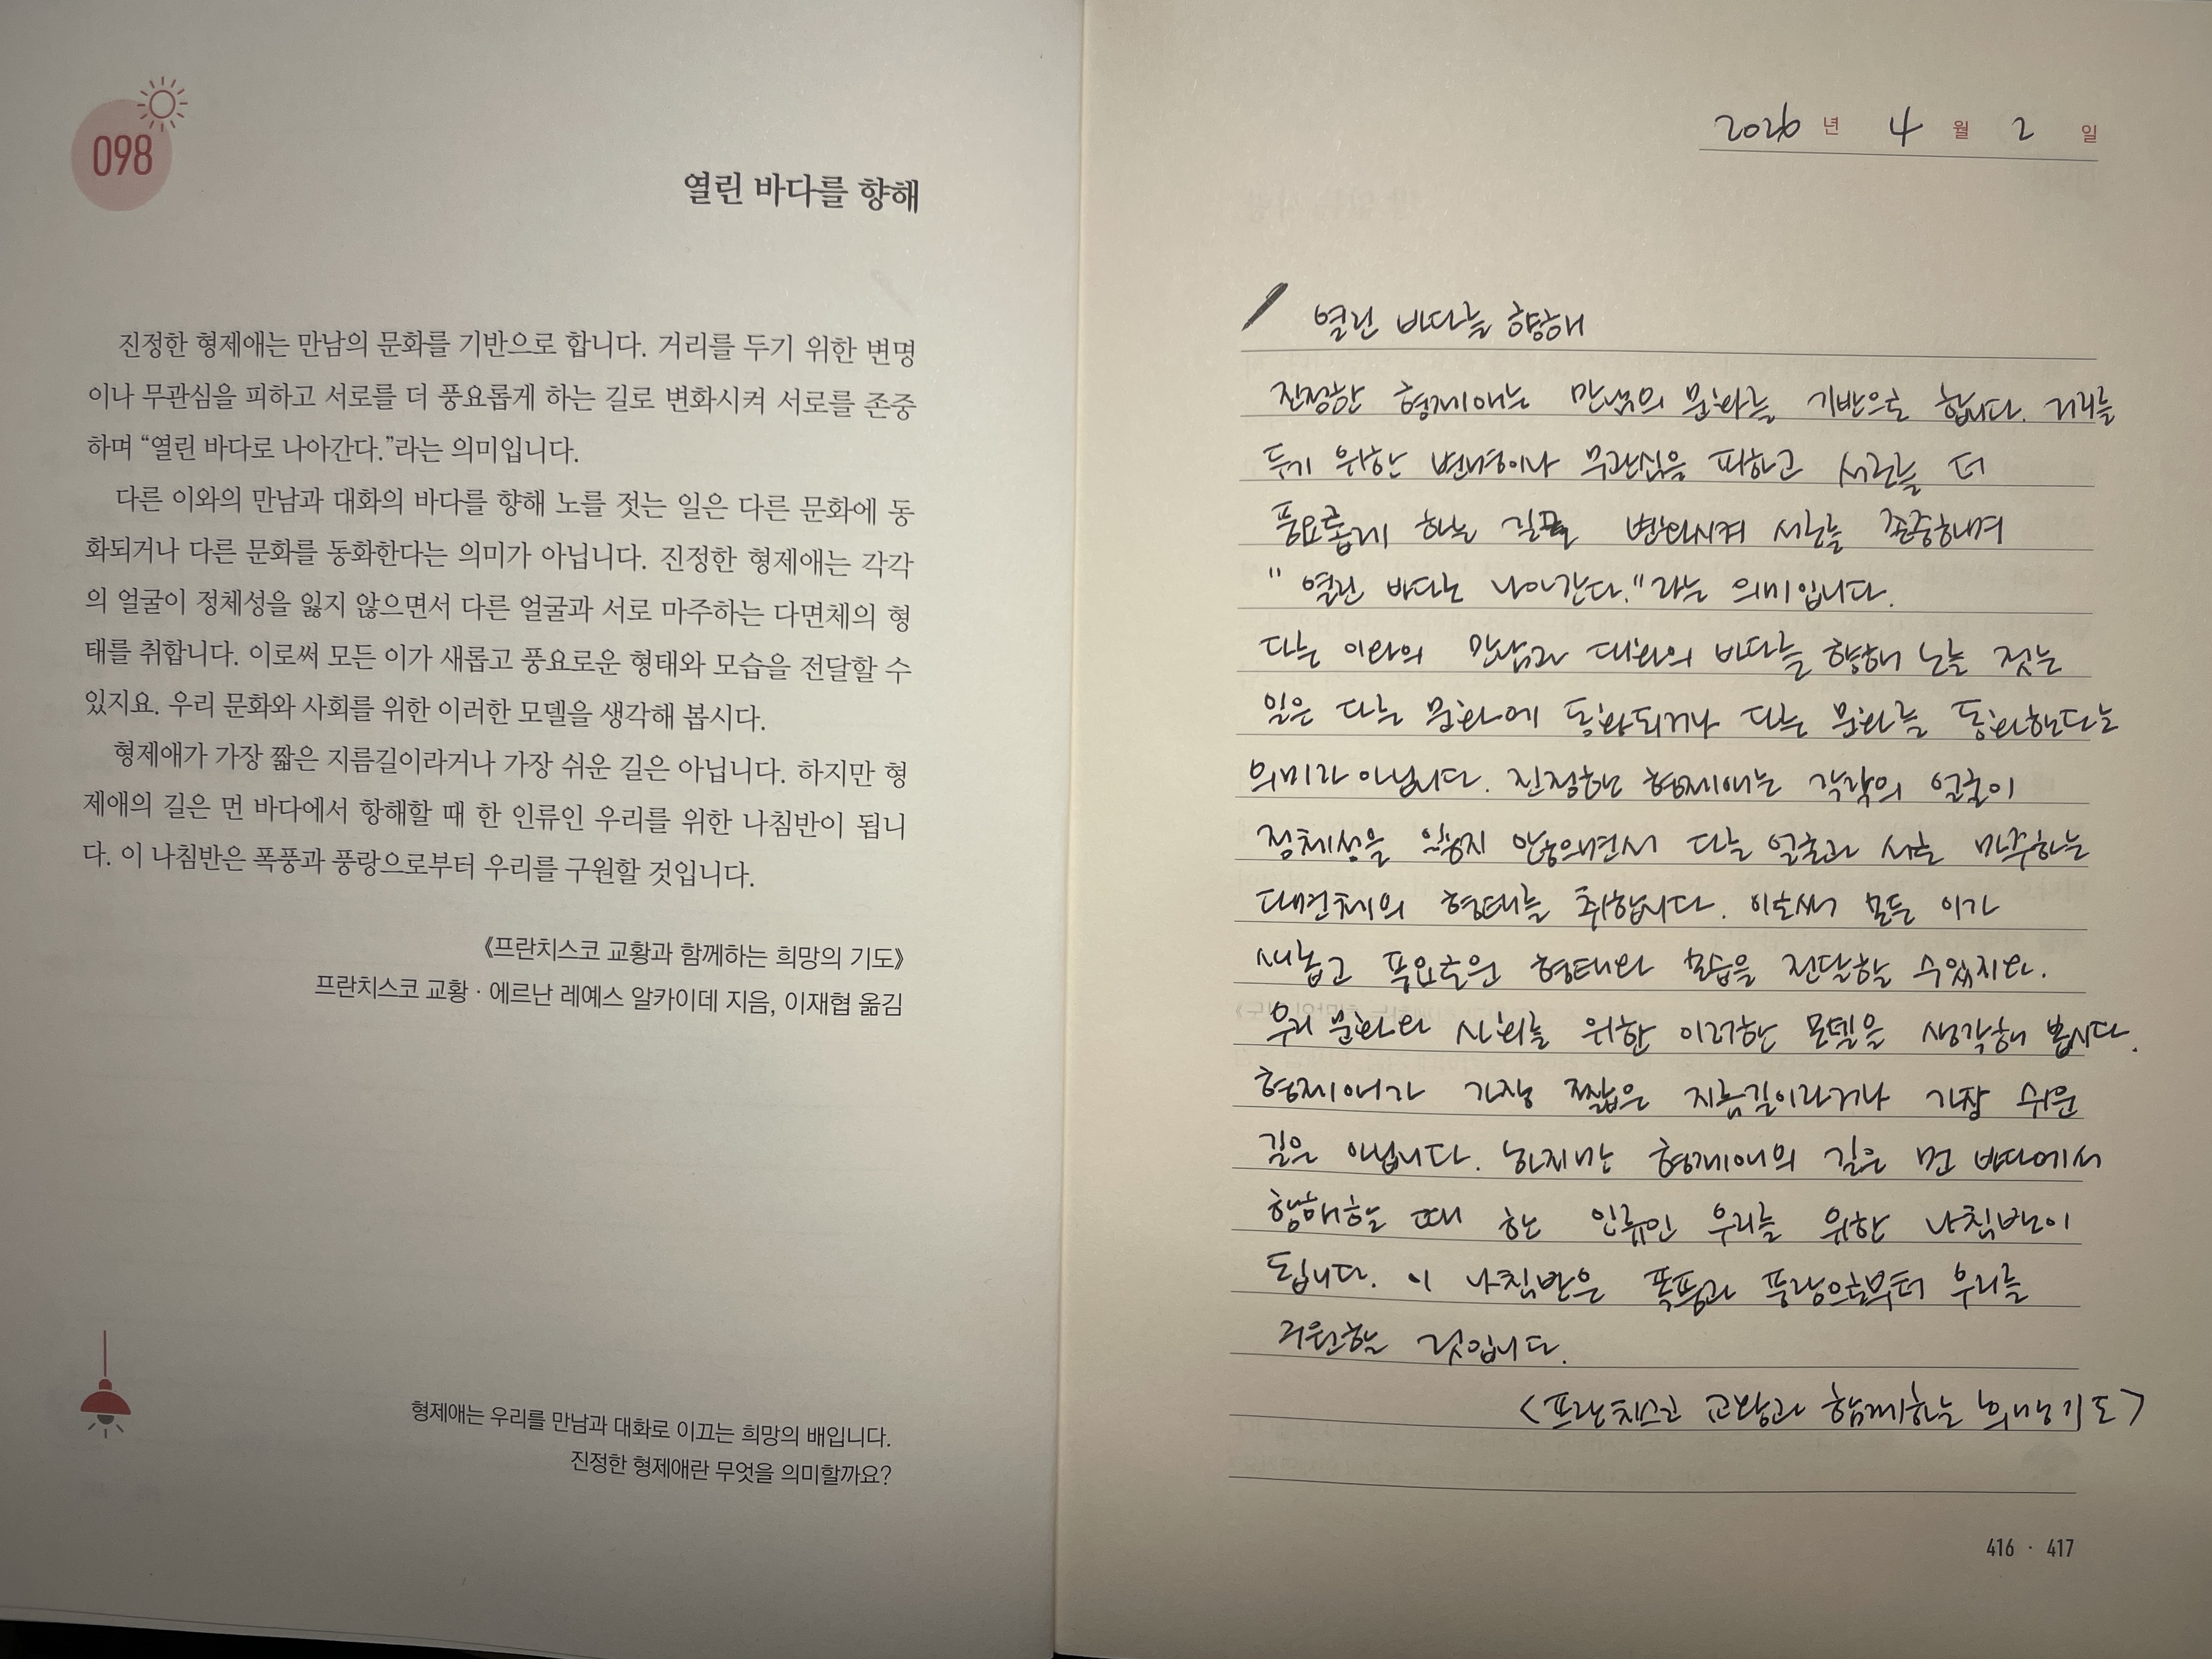 098
열린 바다를 향해
진정한 형제애는 만남의 문화를 기반으로 합니다. 거리를 두기 위한 변명
이나 무관심을 피하고 서로를 더 풍요롭게 하는 길로 변화시켜 서로를 존중
하며 “열린 바다로 나아간다.”라는 의미입니다.
다른 이와의 만남과 대화의 바다를 향해 노를 젓는 일은 다른 문화에 동
화되거나 다른 문화를 동화한다는 의미가 아닙니다. 진정한 형제애는 각각
의 얼굴이 정체성을 잃지 않으면서 다른 얼굴과 서로 마주하는 다면체의 형
태를 취합니다. 이로써 모든 이가 새롭고 풍요로운 형태와 모습을 전달할 수
있지요. 우리 문화와 사회를 위한 이러한 모델을 생각해 봅시다.
형제애가 가장 짧은 지름길이라거나 가장 쉬운 길은 아닙니다. 하지만 형
제애의 길은 먼 바다에서 항해할 때 한 인류인 우리를 위한 나침반이 됩니
다. 이 나침반은 폭풍과 풍랑으로부터 우리를 구원할 것입니다.
《프란치스코 교황과 함께하는 희망의 기도》
프란치스코 교황 · 에르난 레예스 알카이데 지음, 이재협 옮김
형제애는 우리를 만남과 대화로 이끄는 희망의 배입니다.
진정한 형제애란 무엇을 의미할까요?
2026 년 4 월 2 일
열린 바다를 향해
진정한 형제애는 만남의 문화를 기반으로 합니다. 거리를
두기 위한 변명이나 무관심을 피하고 서로를 더
풍요롭게 하는 길로 변화시켜 서로를 존중하며
"열린 바다로 나아간다."라는 의미입니다.
다른 이와의 만남과 대화의 바다를 향해 노를 젓는
일은 다른 문화에 동화되거나 다른 문화를 동화한다는
의미가 아닙니다. 진정한 형제애는 각각의 얼굴이
정체성을 잃지 않으면서 다른 얼굴과 서로 마주하는
다면체의 형태를 취합니다. 이로써 모든 이가
새롭고 풍요로운 형태와 모습을 전달할 수있지요.
우리 문화와 사회를 위한 이러한 모델을 생각해 봅시다.
형제애가 가장 짧은 지름길이라거나 가장 쉬운
길은 아닙니다. 하지만 형제애의 길은 먼 바다에서
항해할 때 한 인류인 우리를 위한 나침반이
됩니다. 이 나침반은 폭풍과 풍랑으로부터 우리를
구원할 것입니다.
<프란치스코 교황과 함께하는 희망기도>
416 · 417